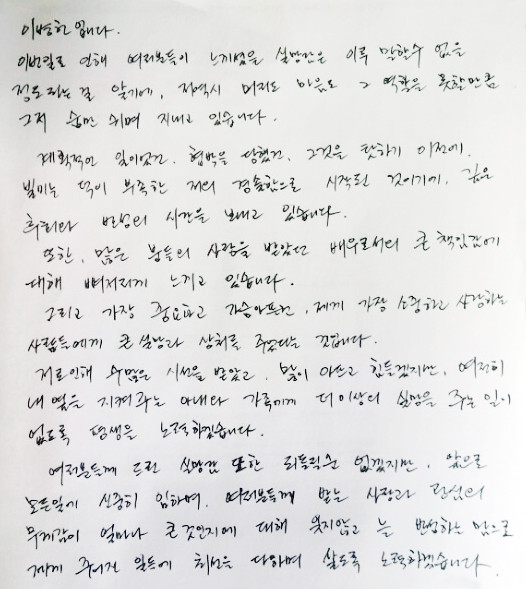 이병헌입니다.
이번일로 인해 여러분들이 느끼셨을 실망감은 이루 말할수 없을
정도라는걸 알기에, 저역시 머리도 마음도 그 역할을 못할만큼
그저 숨만 쉬며 지내고 있습니다.
계획적인 일이었건, 협박을 당했건, 그것을 탓하기 이전에,
빌미는 덕이 부족한 저의 경솔함으로 시작된 것이기에, 깊은
후회와 반성의 시간을 보내고 있습니다.
또한, 많은 분들의 사랑을 받았던 배우로서의 큰 책임감에
대해 뼈저리게 느끼고 있습니다.
그리고 가장 중요하고 가슴아프건, 제게 가장 소중하고 사랑하는
사람들에게 큰 실망과 상처를 주었다는 것입니다.
저로인해 수많은 시선을 받았고, 많이 아프고 힘들겠지만, 여전히
내 옆을 지켜주는 아내와 가족에게 더 이상의 실망을 주는 일이
없도록 평생을 노력하겠습니다.
여러분들께 드린 실망감 또한 되돌릴순 없겠지만, 앞으로
모든일에 신중히 임하며, 여러분들께 받는 사랑과 관심의
무게감이 얼마나 큰것인지에 대해 잊지않고 늘 반성하는 맘으로
제게 주어진 일들에 최선을 다하며 살도록 노력하겠습니다.